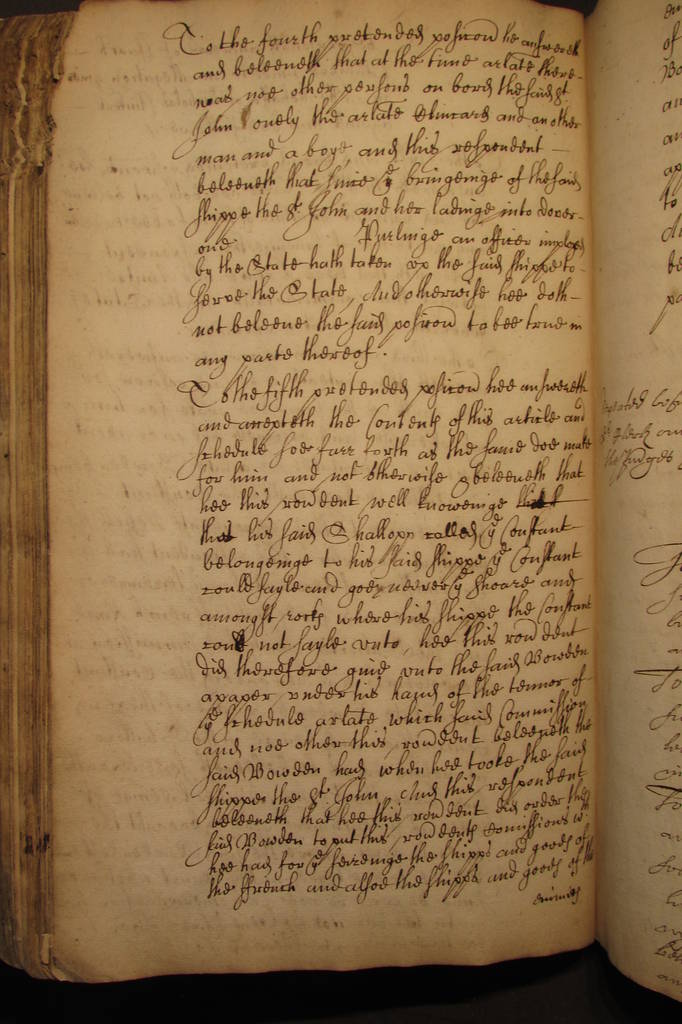 To the fourth pretended posicon he answereth
and beleeveth that at the time arlate there
was noe other persons on bord the said St
John onely the arlate Edwards and another
man and a boye and this respondent
beleeveth that since ye bringeinge of the said
shippe the St John and her ladinge into Dover
one Purlinge an officer imployed
by the State hath taken vp the said shippe to
serve the State, And otherwise hee doth
not beleeve the said posicon to bee true in
any parte thereof.
To the fifth pretended posicon hee answereth
and accepteth the Contents of this article and
schedule soe farr forth as the same doe make
for him and not otherwise & beleeveth that
hee this rondent well knoweinge
that his said Shallopp called ye Constant
belongeinge to his said shippe ye Constant
could sayle and goe neerer ye shoare and
amongst rocks where his shippe the Constant
could not sayle vnto, hee this rondent
did therefore give vnto the said Bowden
a paper vnder his hand of the tennor of
ye schedule arlate which said Commission
and noe other this rondent beleeveth the
said Bowden had when hee tooke the said
shippe the St John, And this respondent
beleeveth that hee this rondent did order the
said Bowden to put this rondents comissions wch
hee had for ye seizeinge the shipps and goods of
the ffrench and alsoe the shipps and goods of the
enimies